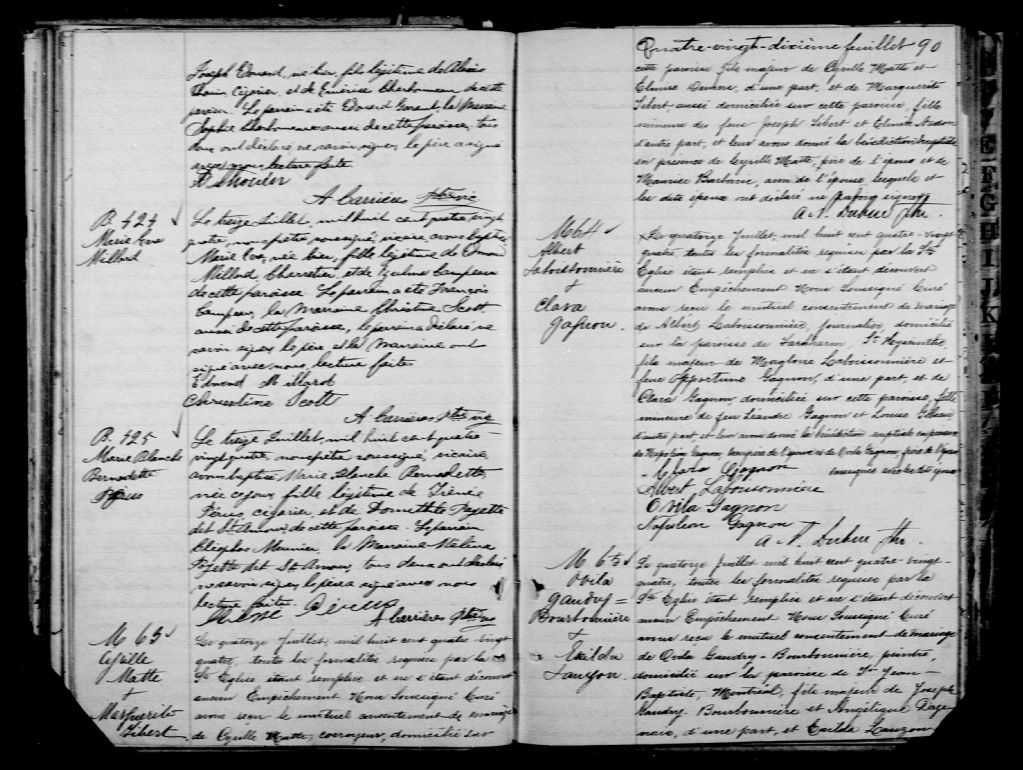 Joseph Edouard, né hier, fils légitime de Aloïs
cigarier, et de Charbonneau de cette
paroisse. Le parrain a été Edouard la Marraine
Sophie Charbonneau aussi de cette paroisse, tous
deux ont déclaré ne savoir signer, le père a signé
avec nous lecture faite
A Carrières Ptre vic
B. 424
Marie Eva
Millard
Le treize Juillet, mil huit cent quatre vingt
quatre, nous prêtre soussigné, vicaire, avons baptisé
Marie Eva, née hier, fille légitime de Edmond
Millard Charretier, et de Campeau
de cette paroisse. Le parrain a été François
Campeau, la Marraine Christine Scott
aussi de cette paroisse, le parrain a déclaré ne
savoir signer, le père et la Marraine ont
signé avec nous, lecture faite
Edmond Millard
Christine Scott
A Carrières Ptre vic
B. 425
Marie Blanche
Bernadette
Le treize Juillet, mil huit cent quatre
vingt quatre, nous prêtre soussigné, vicaire
avons baptisé Marie Blanche Bernadette,
née ce jour, fille légitime de Irénée
cigarier, et de Payette
dit St Amour de cette paroisse. Le parrain
Cléophas Meunier, la Marraine
Payette dit St Amour, tous deux ont déclaré
ne savoir signer, le père a signé avec nous
lecture faite.
A Carrières Ptre vic
M 63
Cyrille
Matte
+
Marguerite
Libert
Le quatorze Juillet, mil huit cent quatre vingt
quatre, toutes les formalités requises par la
Ste Eglise étant remplies et ne s'étant découvert
aucun Empêchement Nous Soussigné Curé
avons reçu le mutuel consentement de mariage
de Cyrille Matte, corroyeur, domicilié sur
Quatre-vingt-dixième feuillet 90
cette paroisse fils majeur de Cyrille Matte et
d'une part, et de Marguerite
Libert aussi domiciliée sur cette paroisse, fille
mineure des feus Joseph Libert et
d'autre part, et leur avons donné la bénédiction nuptiale
en présence de Cyrille Matte, père de l'époux et de
Maurice ami de l'épouse, lesquels et
les dits époux ont déclaré ne savoir signer
M 64
Albert
Laboissonnière
+
Clara
Gagnon.
Le quatorze Juillet, mil huit cent quatre-vingt
quatre, toutes les formalités requises par la Ste
Eglise étant remplies et ne s'étant découvert
aucun Empêchement Nous Soussigné Curé
avons reçu le mutuel consentement de mariage
de Albert Laboissonnière, journalier, domicilié
sur la paroisse de St Hyacinthe,
fils majeur de Magloire Laboissonnière et
feue Opportune Gagnon, d'une part, et de
Clara Gagnon, domiciliée sur cette paroisse, fille
mineure de feu Léandre Gagnon et Louise
d'autre part, et leur avons donné la bénédiction nuptiale en présence
de Napoléon Gagnon, de l'époux et de Ovila Gagnon, frère de l'épouse
soussignés avec les dits époux
Clara Gagnon
Albert Laboissonnière
Ovila Gagnon
Napoleon Gagnon
M 65
Ovila
Gaudry =
Bourbonnière
+
Exilda
Lauzon.
Le quatorze Juillet mil huit cent quatre-vingt-
quatre, toutes les formalités requises par la
Ste Eglise étant remplies et ne s'étant découvert
aucun Empêchement Nous Soussigné Curé
avons reçu le mutuel consentement de mariage
de Ovila Gaudry-Bourbonnière, peintre,
domicilié sur la paroisse de St Jean-
Baptiste, Montréal, fils majeur de Joseph
Gaudry-Bourbonnière et Angélique Daze
nais, d'une part, et Exilda Lauzon